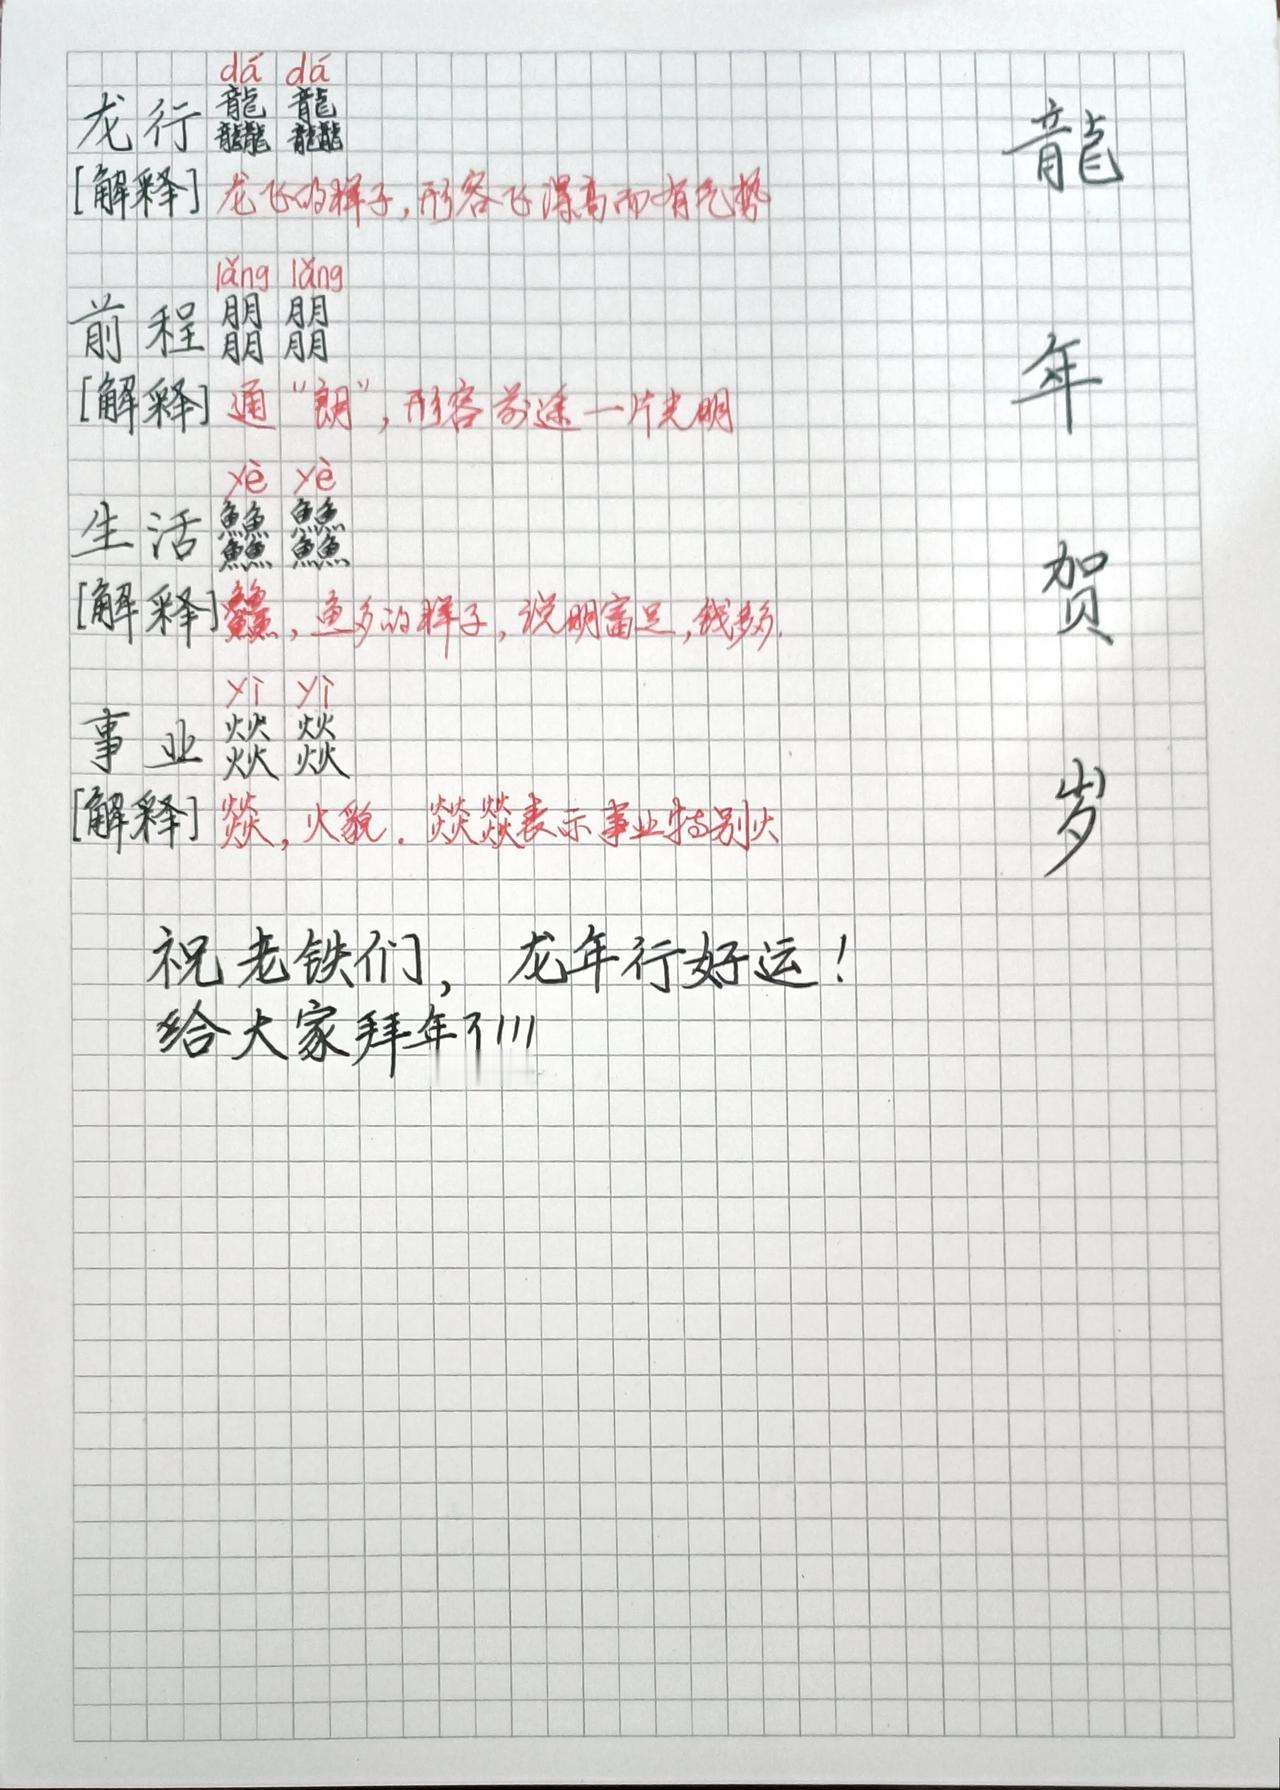 dá dá
龙行龘龘
[解释] 龙飞的样子,形容飞得高而有气势
lǎng lǎng
前程朤朤
[解释] 通“朗”,形容前途一片光明
yè yè
生活䲜䲜
[解释]䲜,鱼多的样子,说明富足,钱多多.
yì yì
事业燚燚
[解释] 燚,火貌.燚燚表示事业特别火
祝老铁们, 龙年行好运!
给大家拜年了!!!
龍年贺岁